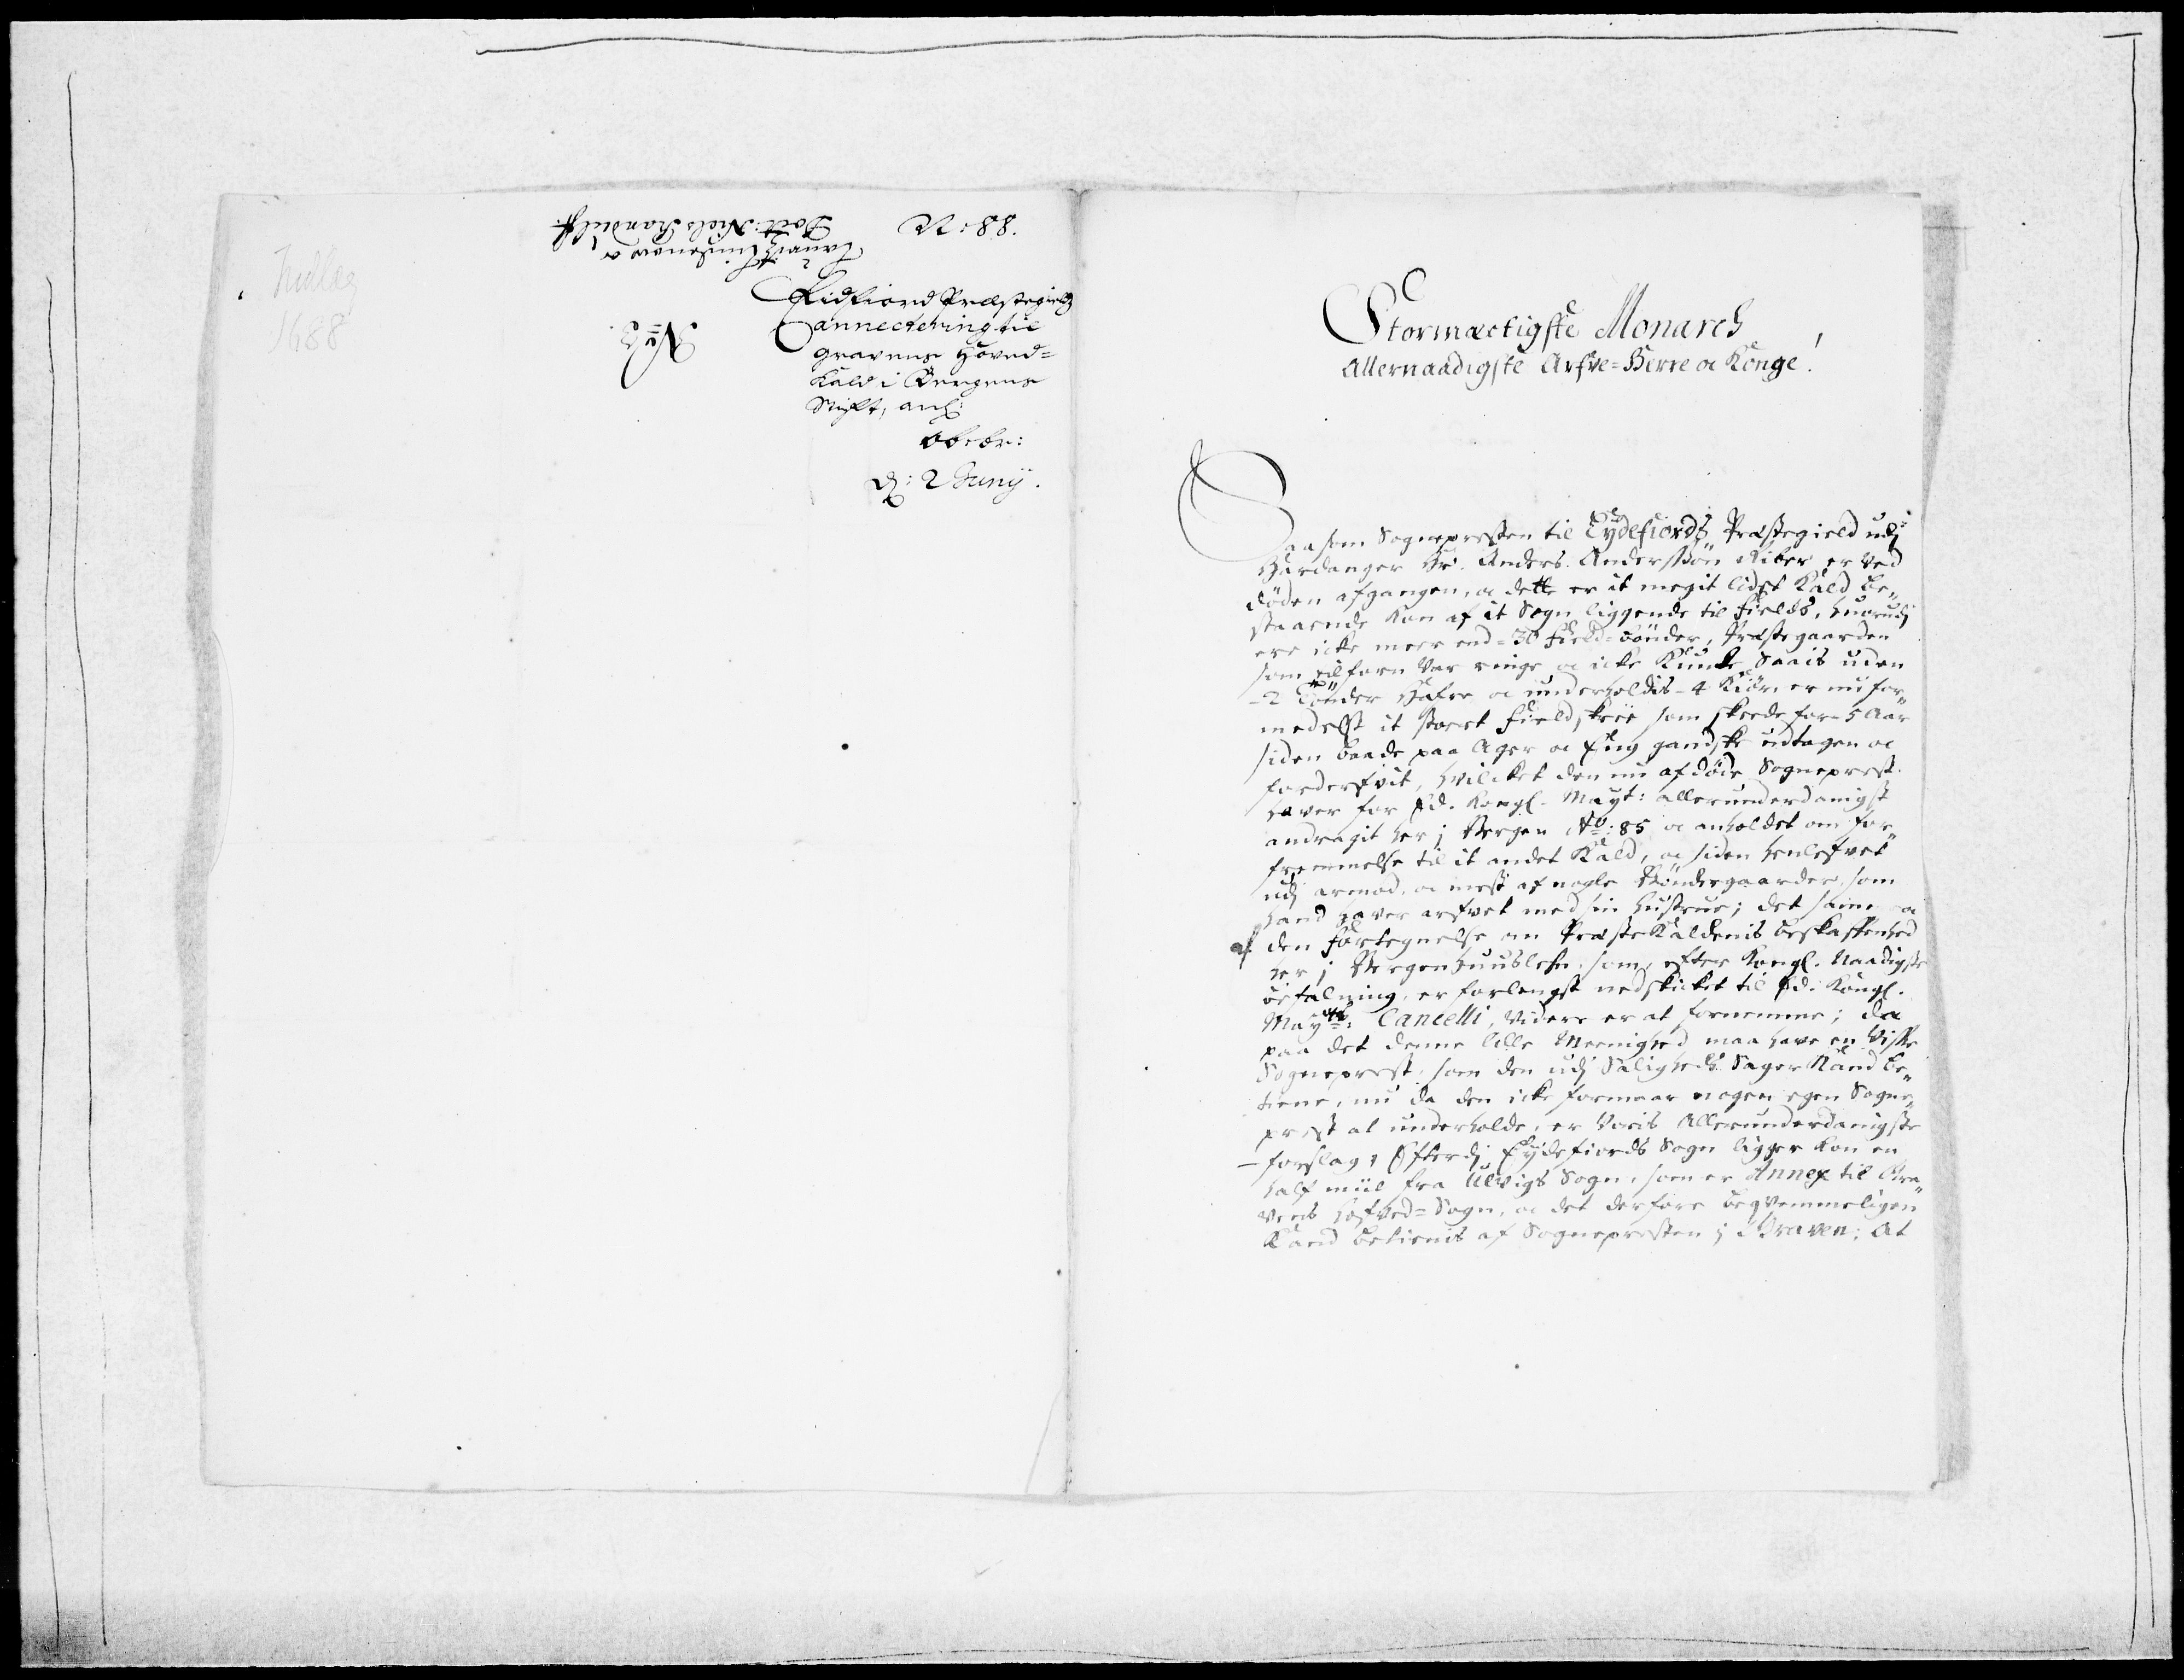 Indleg
1688
Doct: Niels Randulff
No 2.
N: 88.
Eidfiord Præstegields
annectering til
gravens Hoved=
Kald i Bergens
Stift, anl:
obebr:
d: 2 Juny.
Stormæctigste Monarch
Allernaadigste Arfve=Herre oc Konge!
Saasom Sognepresten til Eydefiords Præstegield udj
Hardanger Hr. Anders Anderssøn Riber er ved
døden afgangen, oc dette er it megit lidet Kald be„
staaende Kon af it Sogn liggende til Fields, huorudj
ere icke meer end =30 Field=bønder, Præstegaarden
som tilforn var ringe oc icke Kunde Saais uden
=2 tønder Hafre oc underholdis =4 Kiør, er nu for„
medelst it stoert Fieldskree som skeede for =5 Aar
siden baade paa Ager oc Eng gandske udtagen oc
forderfvit, hvilcket den nu afdøde Sogneprest
haver for Ed. Kongl. Mayt: allerunderdanigst
andragit her j Bergen Ao: 85 oc anholdet om for„
fremmelse til it andet Kald, oc siden henlefvet
udj armod, oc mest af nogle Bøndergaarder som
hand haver arfvet med sin hustrue; det samme oc
af den Fortegnelse om Præste Kaldenis beskaffenhed
her j Bergenhuuslehn, som, efter Kongl. Naadigste
befalning, er forlengst nedskicket til Ed. Kongl.
Maytts: Cancelli, videre er at fornemme; da
paa det denne lille Meenighed maa have en visse
Sogneprest, som den udj Saligheds Sager Kand be„
tiene, nu da den icke formaar nogen egen Sogne„
prest at underholde, er voris Allerunderdanigste
forslag, Efterdj Eydefiords Sogn ligger Kon en
half miil fra Ulvigs Sogn, som er Annex til Gra„
vens hofved=Sogn, oc det derfore beqvemmeligen
Kand betienis af Sognepresten j Graven; At